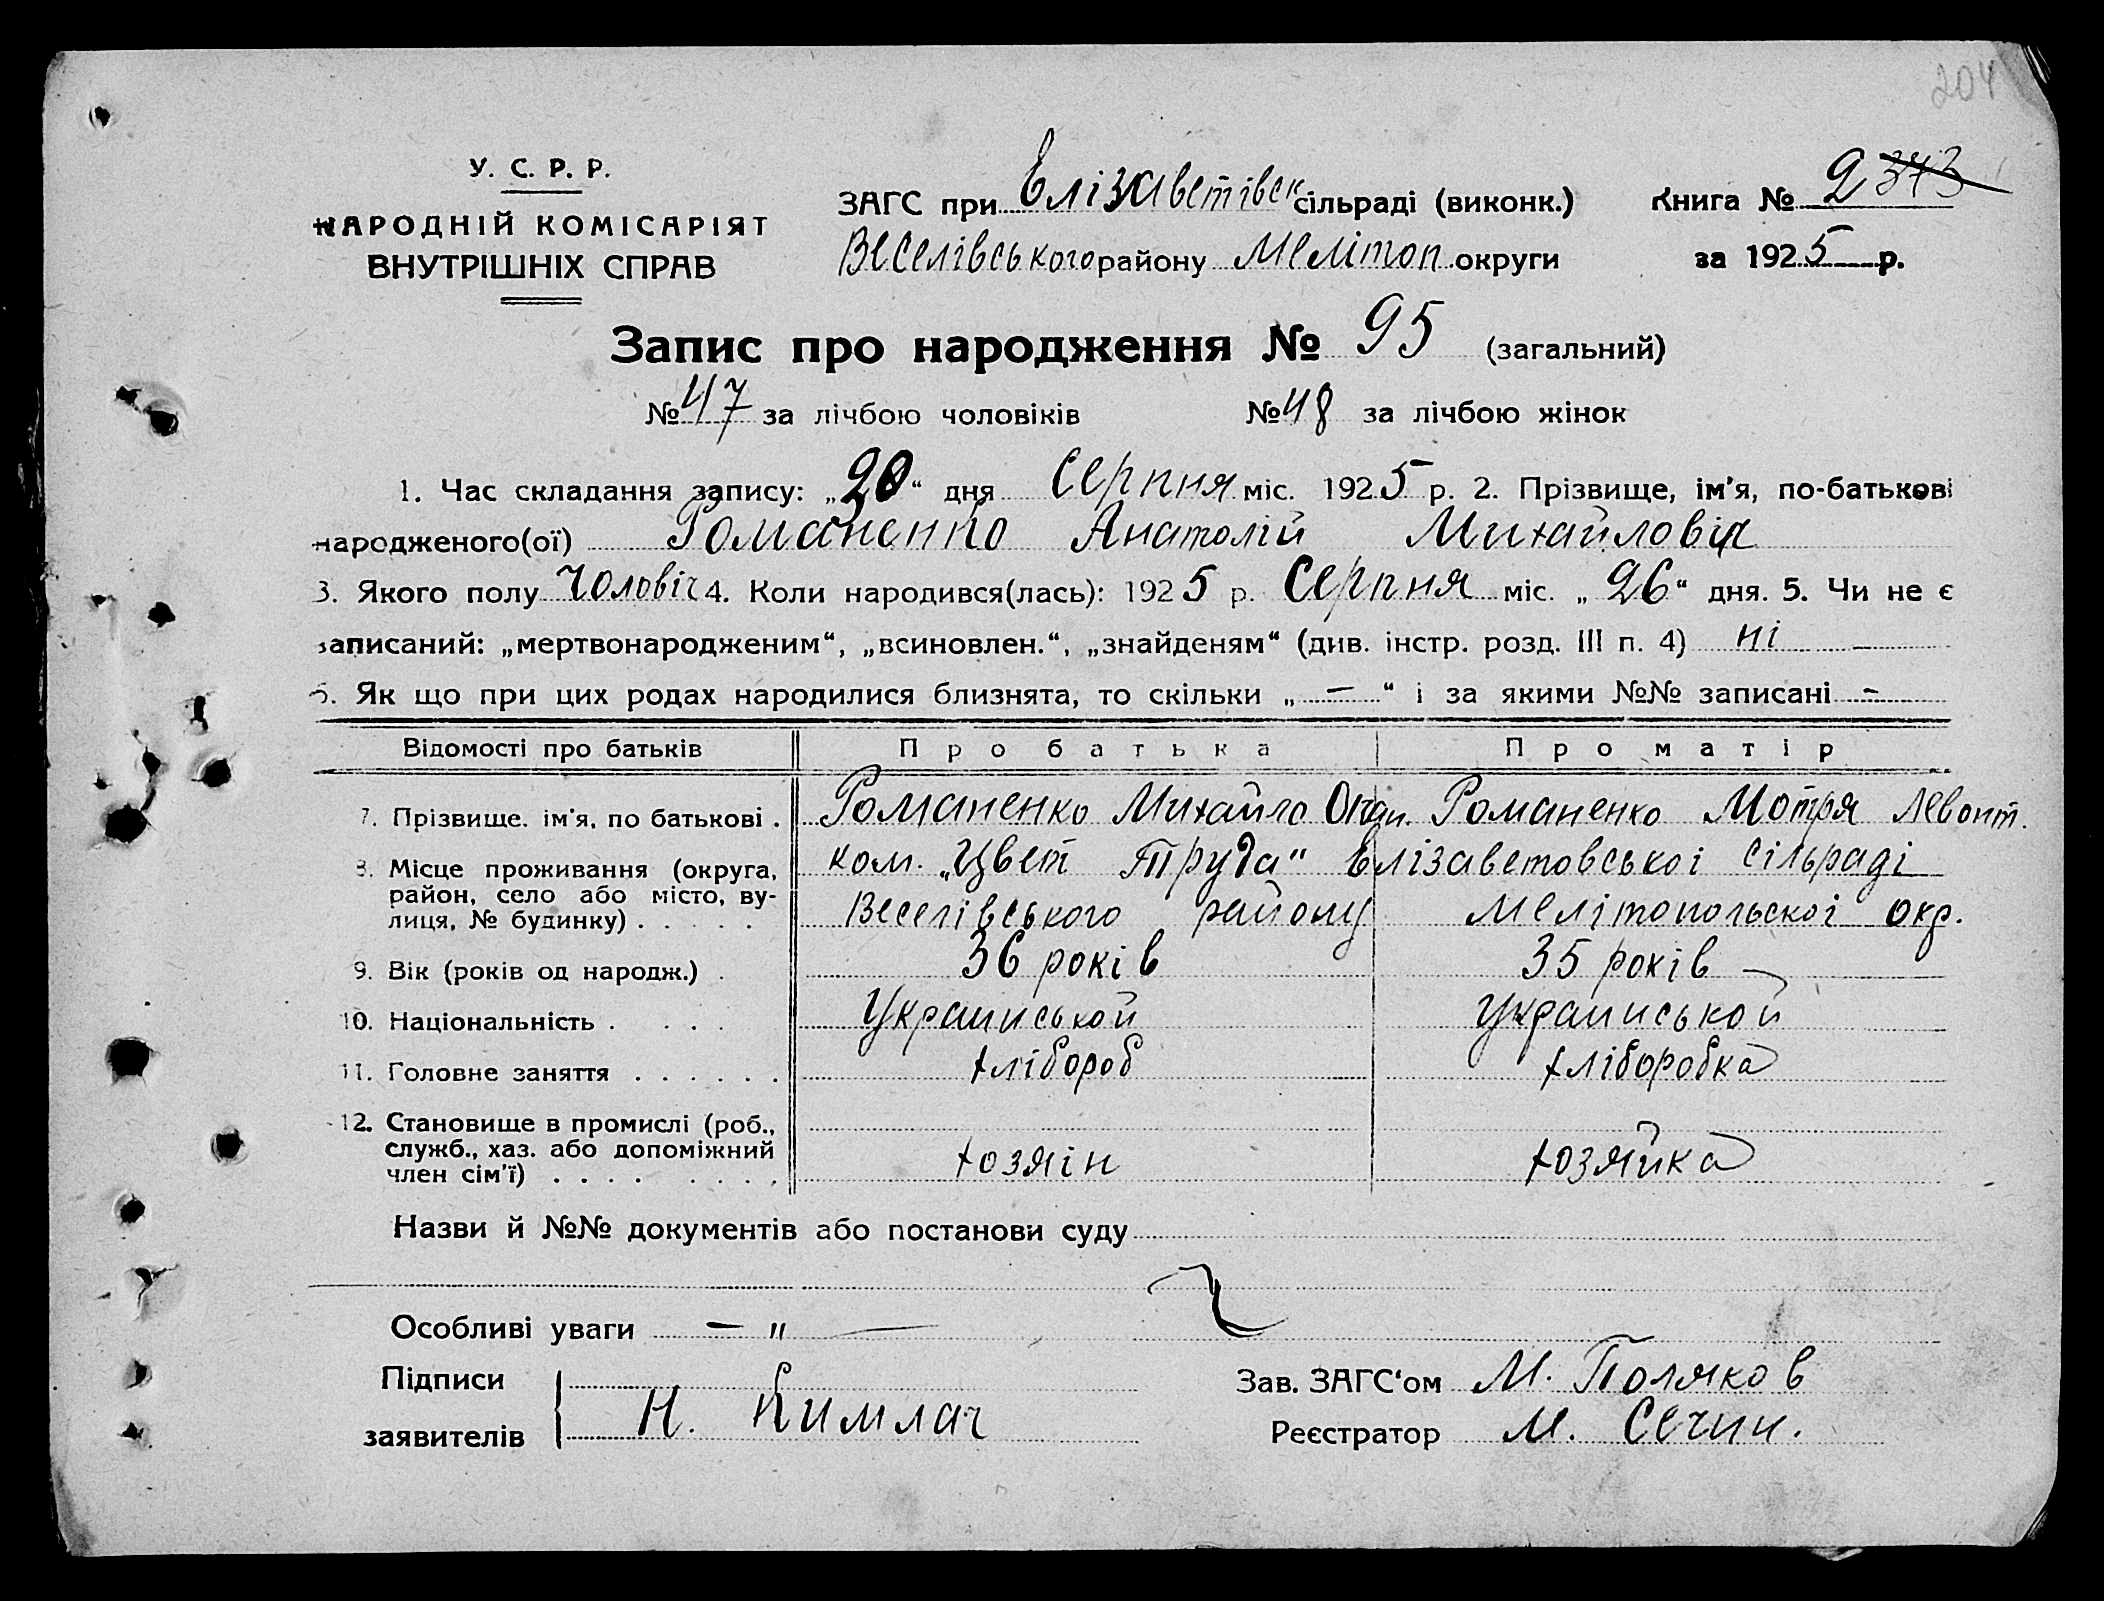 204
У. С. Р. Р.
НАРОДНІЙ КОМІСАРІЯТ
ВНУТРІШНІХ СПРАВ
ЗАГС при Елізаветівск сільраді (виконк.)
Веселівського району Мелітоп. округи
Книга № 2 373
за 1925 р.
Запис про народження № 95 (загальний)
№ 47 за лічбою чоловіків № 48 за лічбою жінок
1. Час складання запису: „20“ дня Серпня міс. 1925 р. 2. Прізвище, ім'я, по-батькові
народженого(ої) Романенко Анатолій Михайловіч
3. Якого полу Чоловіч 4. Коли народився(лась): 1925 р. Серпня міс. „26“ дня. 5. Чи не є
записаний: „мертвонародженим“, „всиновлен.“, „знайденям“ (див. інстр. розд. III п. 4) ні —
6. Як що при цих родах народилися близнята, то скільки „ — “ і за якими №№ записані -
Відомості про батьків Про батька Про матір
7. Прізвище. ім'я, по батькові . Романенко Михайло Романенко Мотря Левонт.
8. Місце проживання (округа, ком. „Цвет Труда" Елізаветовськоі сільраді
район, село або місто, ву-
лиця, № будинку) . . . . . Веселівського району Мелітопольскоі окр.
9. Вік (років од народж.) . 36 років 35 років —
10. Національність . . . . Украинськой Украинськой
11. Головне заняття . . . . . . хлібороб хліборобка
12. Становище в промислі (роб.,
служб., хаз. або допоміжний хозяін хозяйка
член сім'ї) . . . . . . . .
Назви й №№ документів або постанови суду
Особливі уваги — " —
Підписи
заявителів Н. Кимлач
Зав. ЗАГС'ом М. Поляков
Реєстратор М. Сечин.